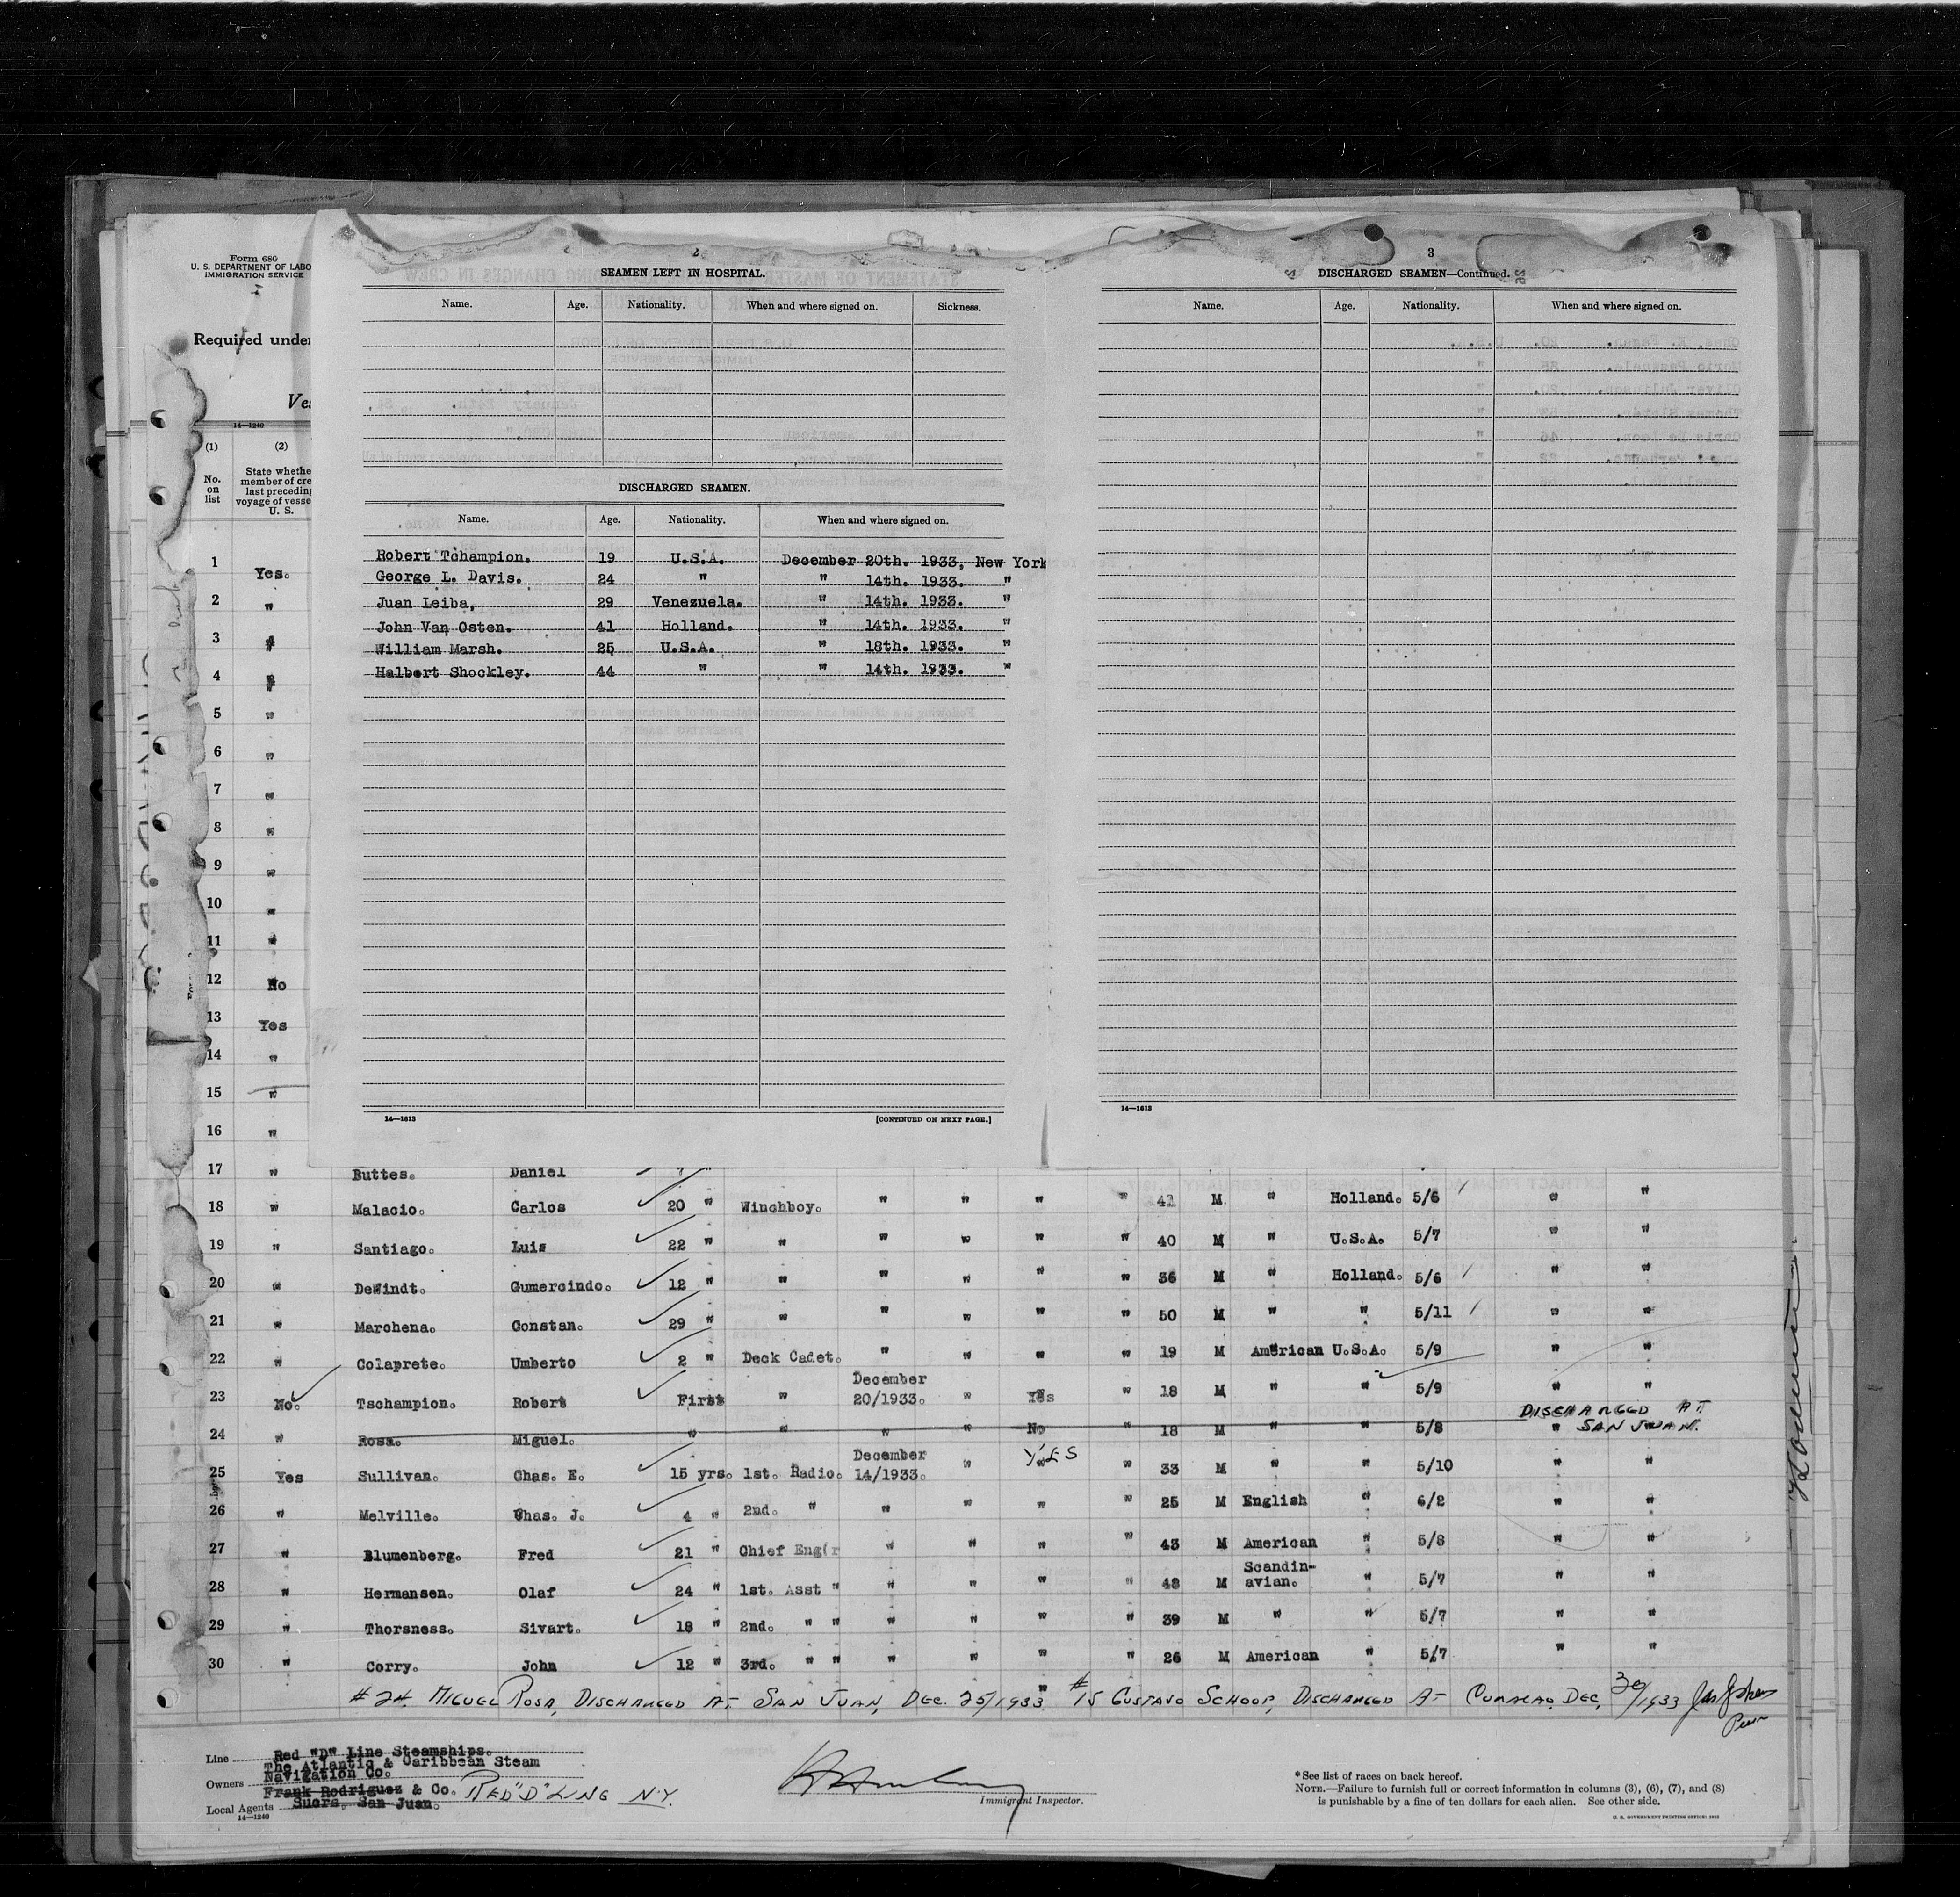 Form 680
U. S. DEPARTMENT OF LABO
IMMIGRATION SERVICE
Required under
14—1240
(1) (2)
No. on list
State whethe
member of cre
last preceding
voyage of vesse
U. S.
2
SEAMEN LEFT IN HOSPITAL.
Name. Age. Nationality. When and where signed on. Sickness.
DISCHARGED SEAMEN.
Name. Age. Nationality. When and where signed on.
Robert Tchampion. 19 U.S.A. December 20th. 1933, New York
George L. Davis. 24 " " 14th. 1933. "
Juan Leiba, 29 Venezuela. " 14th. 1933. "
John Van Osten. 41 Holland. " 14th. 1933. "
William Marsh. 25 U.S.A. " 18th. 1933. "
Halbert Shockley. 44 " " 14th. 1933. "
14—1613 [CONTINUED ON NEXT PAGE.]
3
DISCHARGED SEAMEN—Continued.
Name. Age. Nationality. When and where signed on.
14—1613
1 Yes.
2 "
3 "
4 "
5 "
6 "
7 "
8 "
9 "
10 "
11 "
12 No
13 Yes
14 "
15 "
16 "
17 " Buttes. Daniel
18 " Malacio. Carlos 20 " Winchboy. " " " " 41 M " Holland. 5/6 " "
19 " Santiago. Luis 22 " " " " " " 40 M " U.S.A. 5/7 " "
20 " DeWindt. Gumercindo. 12 " " " " " " 36 M " Holland. 5/6 " "
21 " Marchena. Constan. 29 " " " " " " 50 M " " 5/11 " "
22 " Colaprete. Umberto 2 " Deck Cadet. " " " " 19 M American U.S.A. 5/9 " "
23 No. Tschampion. Robert First " December 20/1933. " Yes " 18 M " " 5/9 " "
24 " Rosa. Miguel. " " " " No " 18 M " " 5/8 " DISCHARGED AT SAN JUAN.
25 Yes Sullivan. Chas. E. 15 yrs. 1st. Radio. December 14/1933. " YES " 33 M " " 5/10 " "
26 " Melville. Chas. J. 4 " 2nd. " " " " " 25 M English " 6/2 " "
27 " Blumenberg. Fred 21 " Chief Eng(r " " " " 43 M American " 5/8 " "
28 " Hermansen. Olaf 24 " 1st. Asst " " " " " 48 M Scandin-avian. " 5/7 " "
29 " Thorsness. Sivart. 18 " 2nd. " " " " " " 39 M " " 5/7 " "
30 " Corry. John 12 " 3rd. " " " " " " 26 M American " 5/7 " "
#24 MIGUEL ROSA, DISCHARGED AT SAN JUAN, DEC. 25/1933 #15 GUSTAVO SCHOOP, DISCHARGED AT CURACAO, DEC, 30/1933
Line Red "D" Line Steamships.
Owners The Atlantic & Caribbean Steam Navigation Co.
Local Agents Frank Rodriguez & Co. Sucrs. San Juan. RED "D" LINE N.Y.
14—1240
Immigrant Inspector.
*See list of races on back hereof.
NOTE.—Failure to furnish full or correct information in columns (3), (6), (7), and (8)
is punishable by a fine of ten dollars for each alien. See other side.